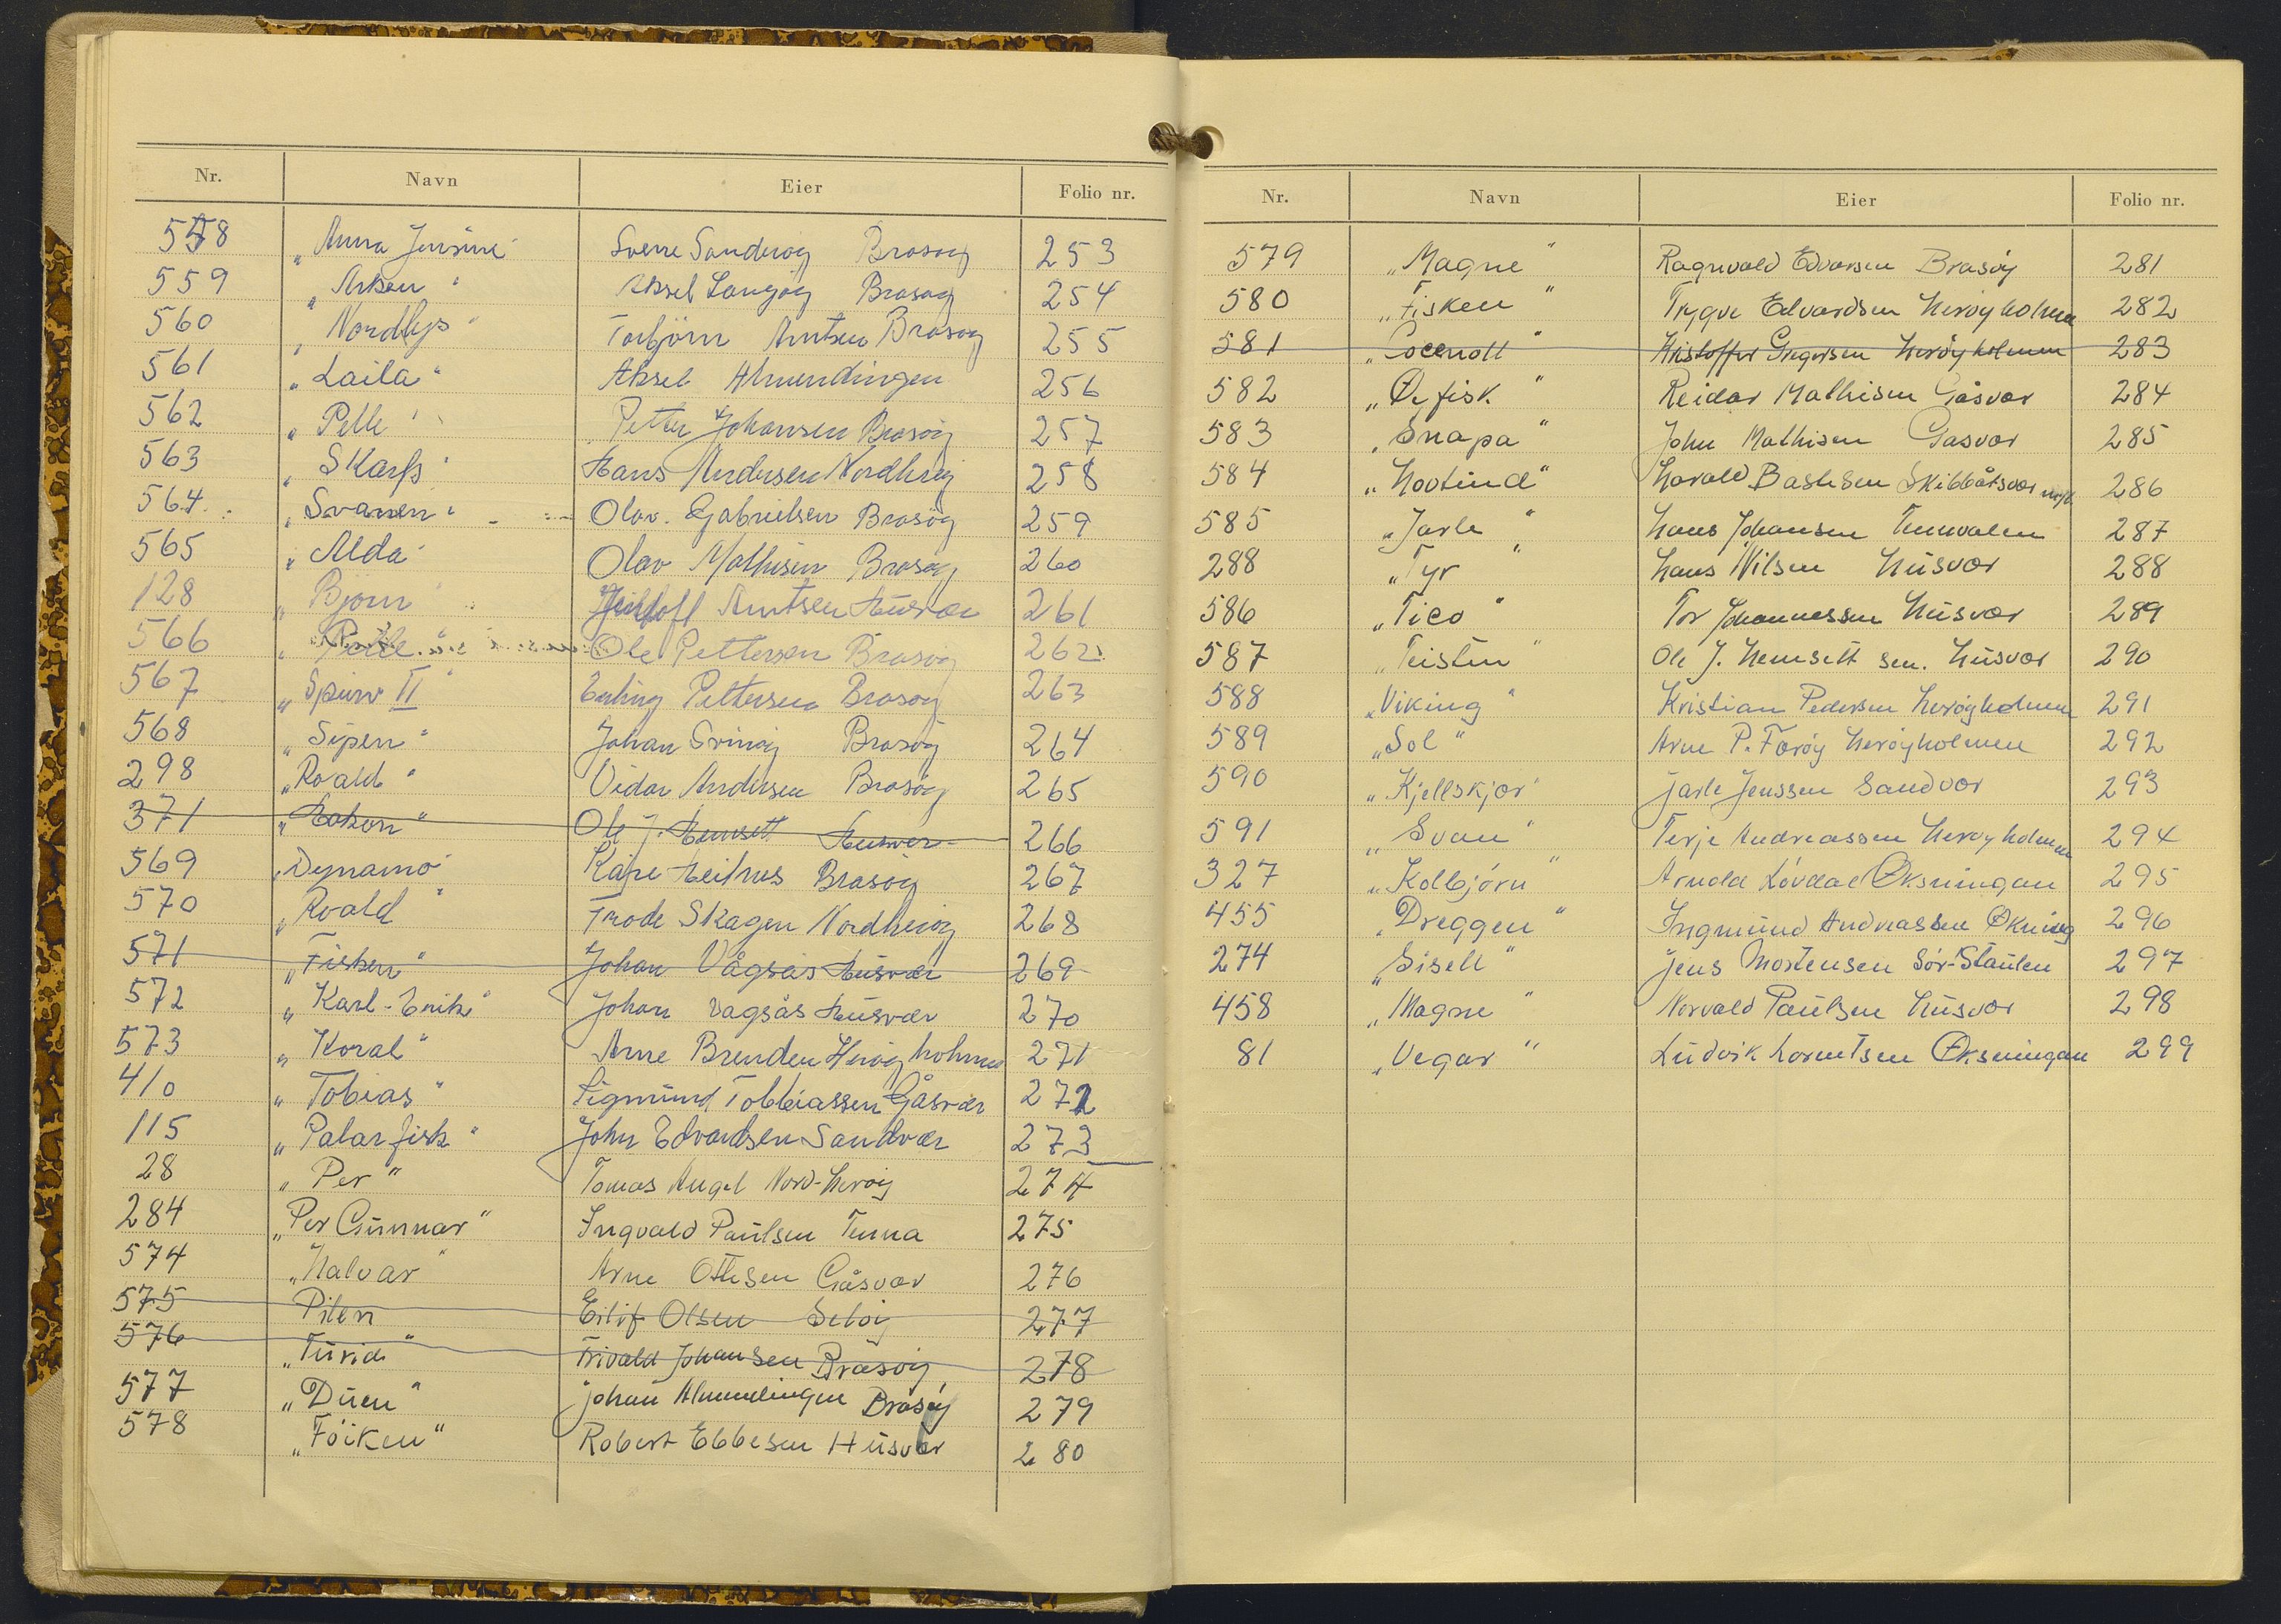 Nr. Navn Eier Folio nr.
558 „Anna Jensine" Sverre Sandvög Brasøy 253
559 „Arken" Aksel Langöy Brasøy 254
560 „Nordlys" Torbjörn Arntsen Brasøy 255
561 „Laila" Aksel Almendingen 256
562 „Pelle" Petter Johansen Brasöy 257
563 „Skarfs" Hans Andersen Nordheröy 258
564 „Svanen" Olav Gabrielsen Brasöy 259
565 „Alda" Olav Mathisen Brasöy 260
128 „Bjørn" Arntsen Husvær 261
566 Ole Pettersen Brasöy 262
567 „Spurv II" Erling Pettersen Brasöy 263
568 „Sipen" Johan Brasöy 264
298 „Roald" Vidar Andersen Brasöy 265
371 „Hakon" Ole J. Hemsett Husvær 266
569 „Dynamo" Kåre Brasöy 267
570 „Roald" Frode Skagen Nordheröy 268
571 „Fisken" Johan Vågsås Husvær 269
572 „Karl-Erik" Johan Vagsås Husvær 270
573 „Koral" Arne Brenden Heröyholmen 271
410 „Tobias" Sigmund Tobbiassen Gåsvær 272
115 „Palarfisk" John Edvardsen Sandvær 273
28 „Per" Tomas Angel Nord-Heröy 274
284 „Per Gunnar" Ingvald Paulsen Tenna 275
574 „Halvar" Arne Ottesen Gåsvær 276
575 Pilen Eilif Olsen Selöy 277
576 „Turid" Trivald Johansen Brasöy 278
577 „Duen" Johan Almendingen Brasöy 279
578 „Föiken" Robert Ebbesen Husvær 280
Nr. Navn Eier Folio nr.
579 „Magne" Ragnvald Edvarsen Brasöy 281
580 „Fisken" Trygve Edvardsen Heröyholmen 282
581 Kristoffer Gregersen Heröyholmen 283
582 „Ørfisk" Reidar Mathisen Gåsvær 284
583 „Snapa" John Mathisen Gåsvær 285
584 „Hovtind" Harald Basksen Skibbåtsvær 286
585 „Jarle" Hans Johansen Tennvalen 287
288 „Tyr" Hans Nilsen Husvær 288
586 „Tico" Tor Johannessen Husvær 289
587 „Teisten" Ole J. Hemsett sen. Husvær 290
588 „Viking" Kristian Pedersen Heröyholmen 291
589 „Sol" Arne P. Faröy Heröyholmen 292
590 „Kjellskjær" Jarle Jenssen Sandvær 293
591 „Svan" Terje Andreassen Heröyholmen 294
327 „Kolbjörn" Arnold Lövdal Øksningan 295
455 „Dreggen" Ingmund Andreassen Øksning 296
274 „Sisell" Jens Mortensen Sör-Staulen 297
458 „Magne" Norvald Paulsen Husvær 298
81 „Vegar" Ludvik Lorentsen Øksningan 299